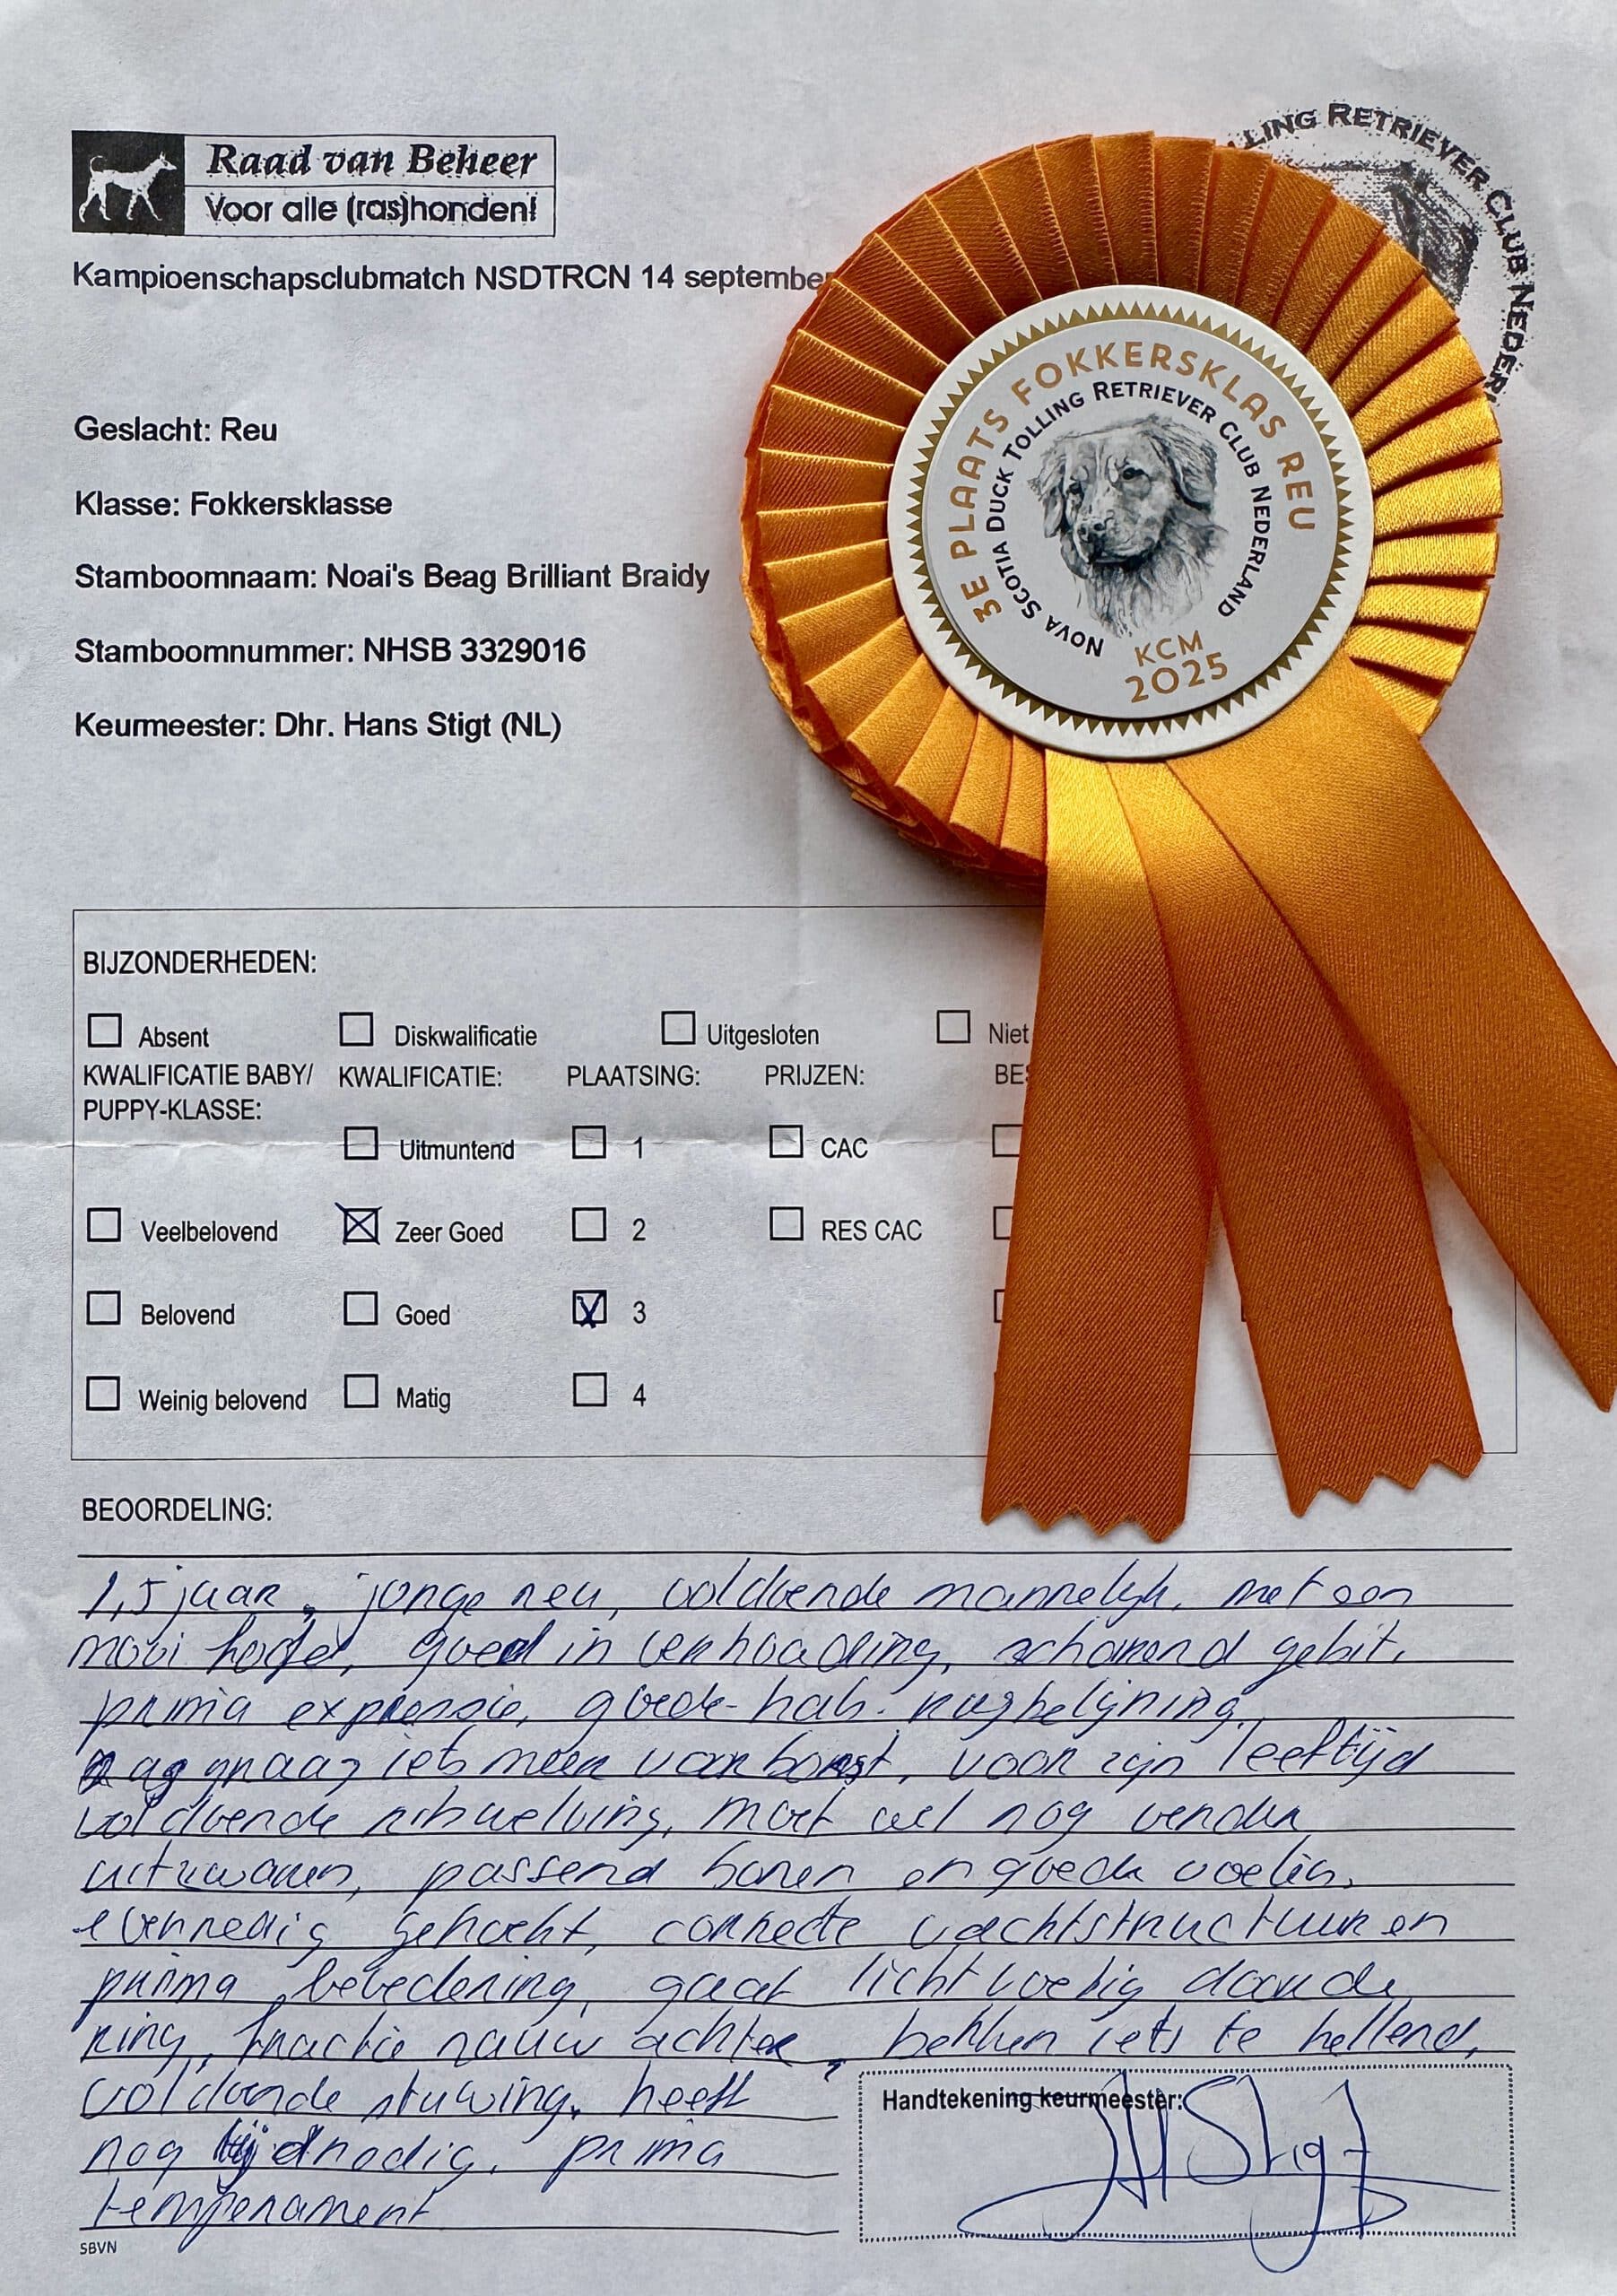 Raad van Beheer
Voor alle (ras)honden!
LING RETRIEVER CLUB NEDER
Kampioenschapsclubmatch NSDTRCN 14 septembe
3E PLAATS FOKKERSKLAS REU
NOVA SCOTIA DUCK TOLLING RETRIEVER CLUB NEDERLAND
KCM
2025
Geslacht: Reu
Klasse: Fokkersklasse
Stamboomnaam: Noai's Beag Brilliant Braidy
Stamboomnummer: NHSB 3329016
Keurmeester: Dhr. Hans Stigt (NL)
BIJZONDERHEDEN:
Absent Diskwalificatie Uitgesloten Niet
KWALIFICATIE BABY/ KWALIFICATIE: PLAATSING: PRIJZEN: BES
PUPPY-KLASSE:
Uitmuntend 1 CAC
Veelbelovend Zeer Goed 2 RES CAC
Belovend Goed 3
Weinig belovend Matig 4
BEOORDELING:
1,5 jaar, jonge reu, voldoende mannelijk, met een
mooi hoofd, goed in verhouding, scharend gebit,
prima expressie, goede hals- rugbelijning,
mag graag iets meer voorborst, voor zijn leeftijd
voldoende ribwelving, moet wel nog verder
uitzwaren, passend bonen en goede voeten,
evenredig gehoekt, correcte vachtstructuur en
prima bevedering, gaat lichtvoetig door de
ring, fractie nauw achter, bekken iets te hellend,
voldoende stuwing, heeft
nog tijd nodig, prima
temperament
Handtekening keurmeester:
HStigt
SBVN